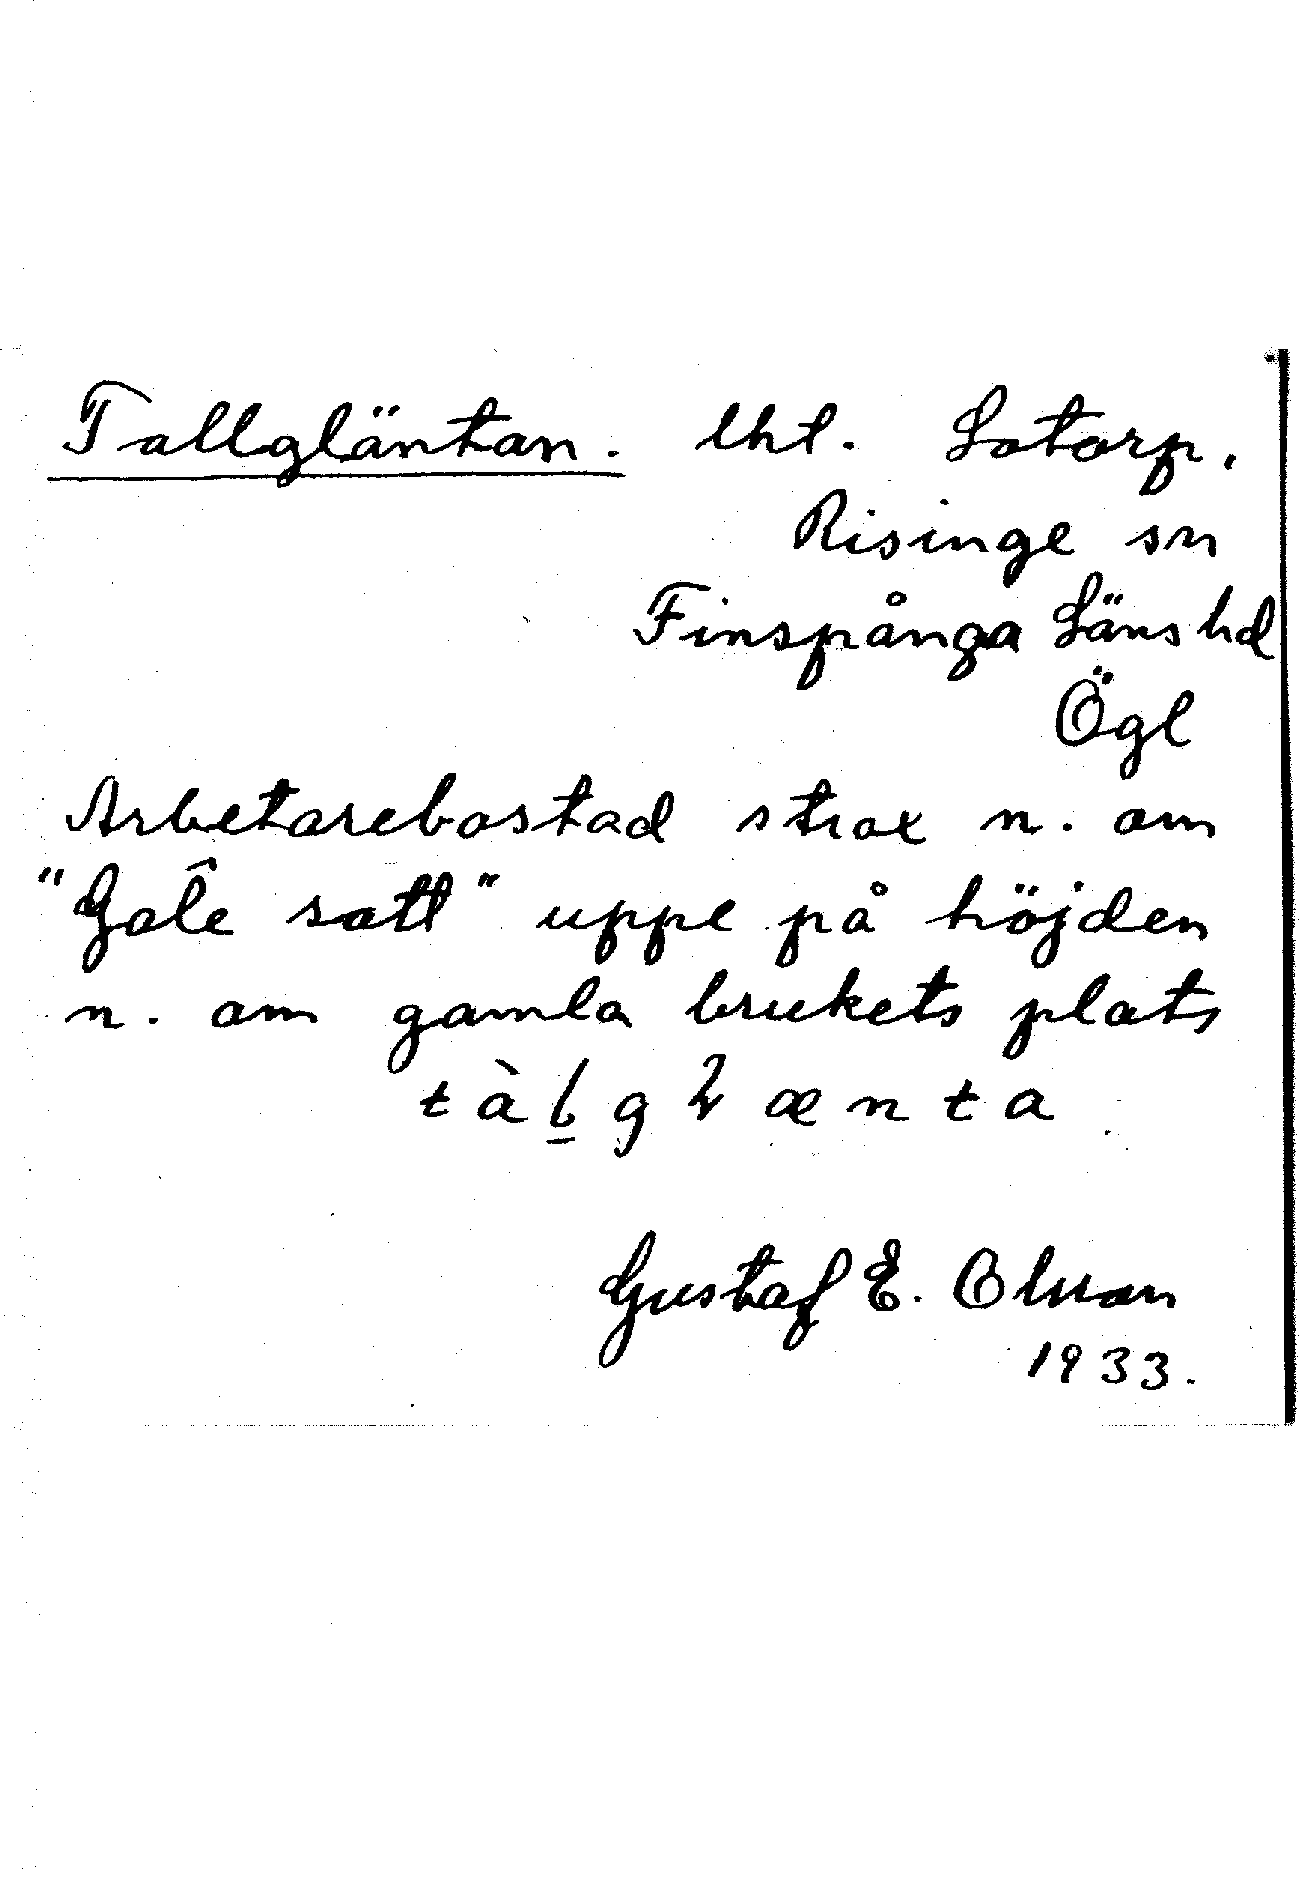 Tallgläntan. lht. Lotorp.
Risinge sn
Finspånga Läns hd
Ögl
Arbetarebostad strax n. om
"Gale satt" uppe på höjden
n. om gamla brukets plats
Gustaf E. Olsson
1933.